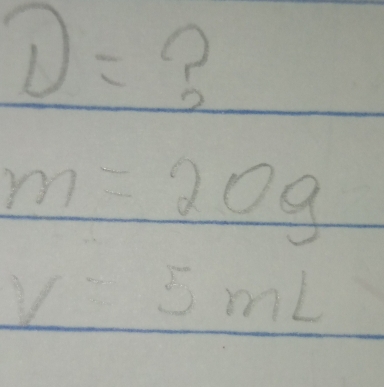 D = ?
m = 20g
V = 5 mL